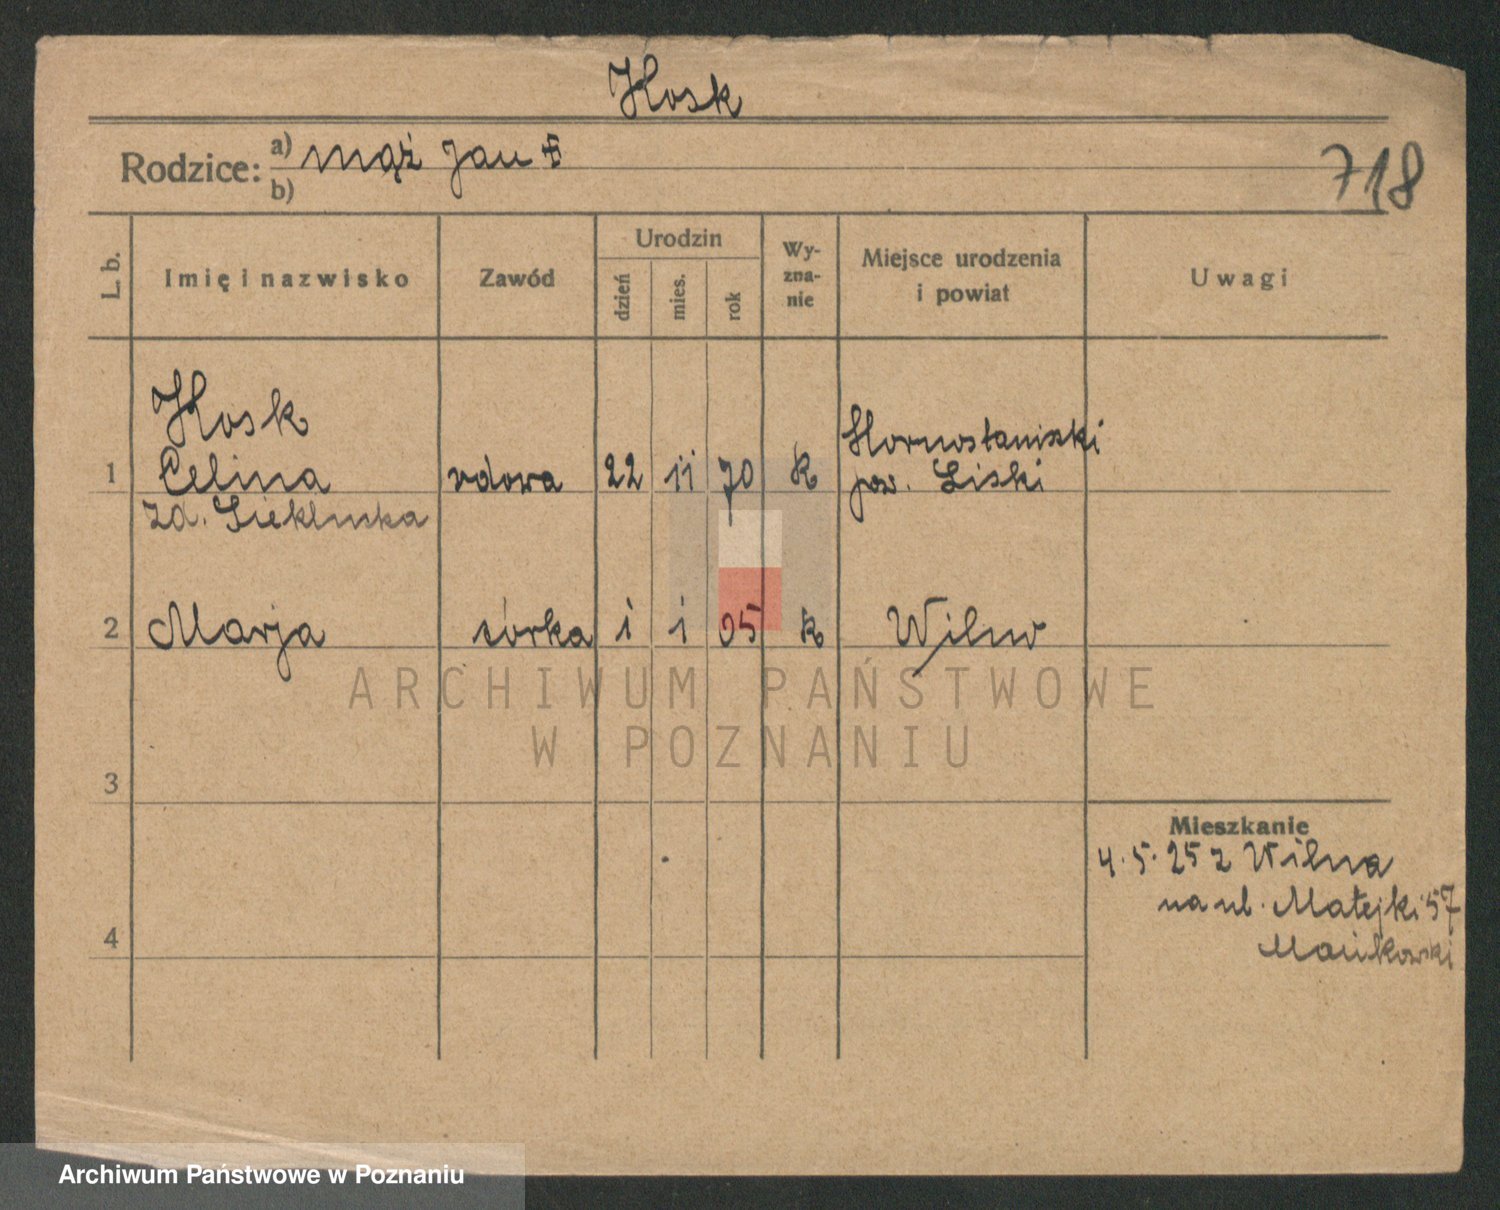 Hosk
Rodzice: a) mąż Jan
b)
718
L. b.
Imię i nazwisko
Zawód
Urodzin
dzień
mies.
rok
Wy-
zna-
nie
Miejsce urodzenia
i powiat
Uwagi
Hosk
1 Celina wdowa 22 11 70 k
zd.
pow.
2 Marja córka 1 1 05 k Wilno
3
Mieszkanie
4. 5. 25 z Wilna
na ul. Matejki 57
4
ARCHIWUM PAŃSTWOWE
W POZNANIU
Archiwum Państwowe w Poznaniu